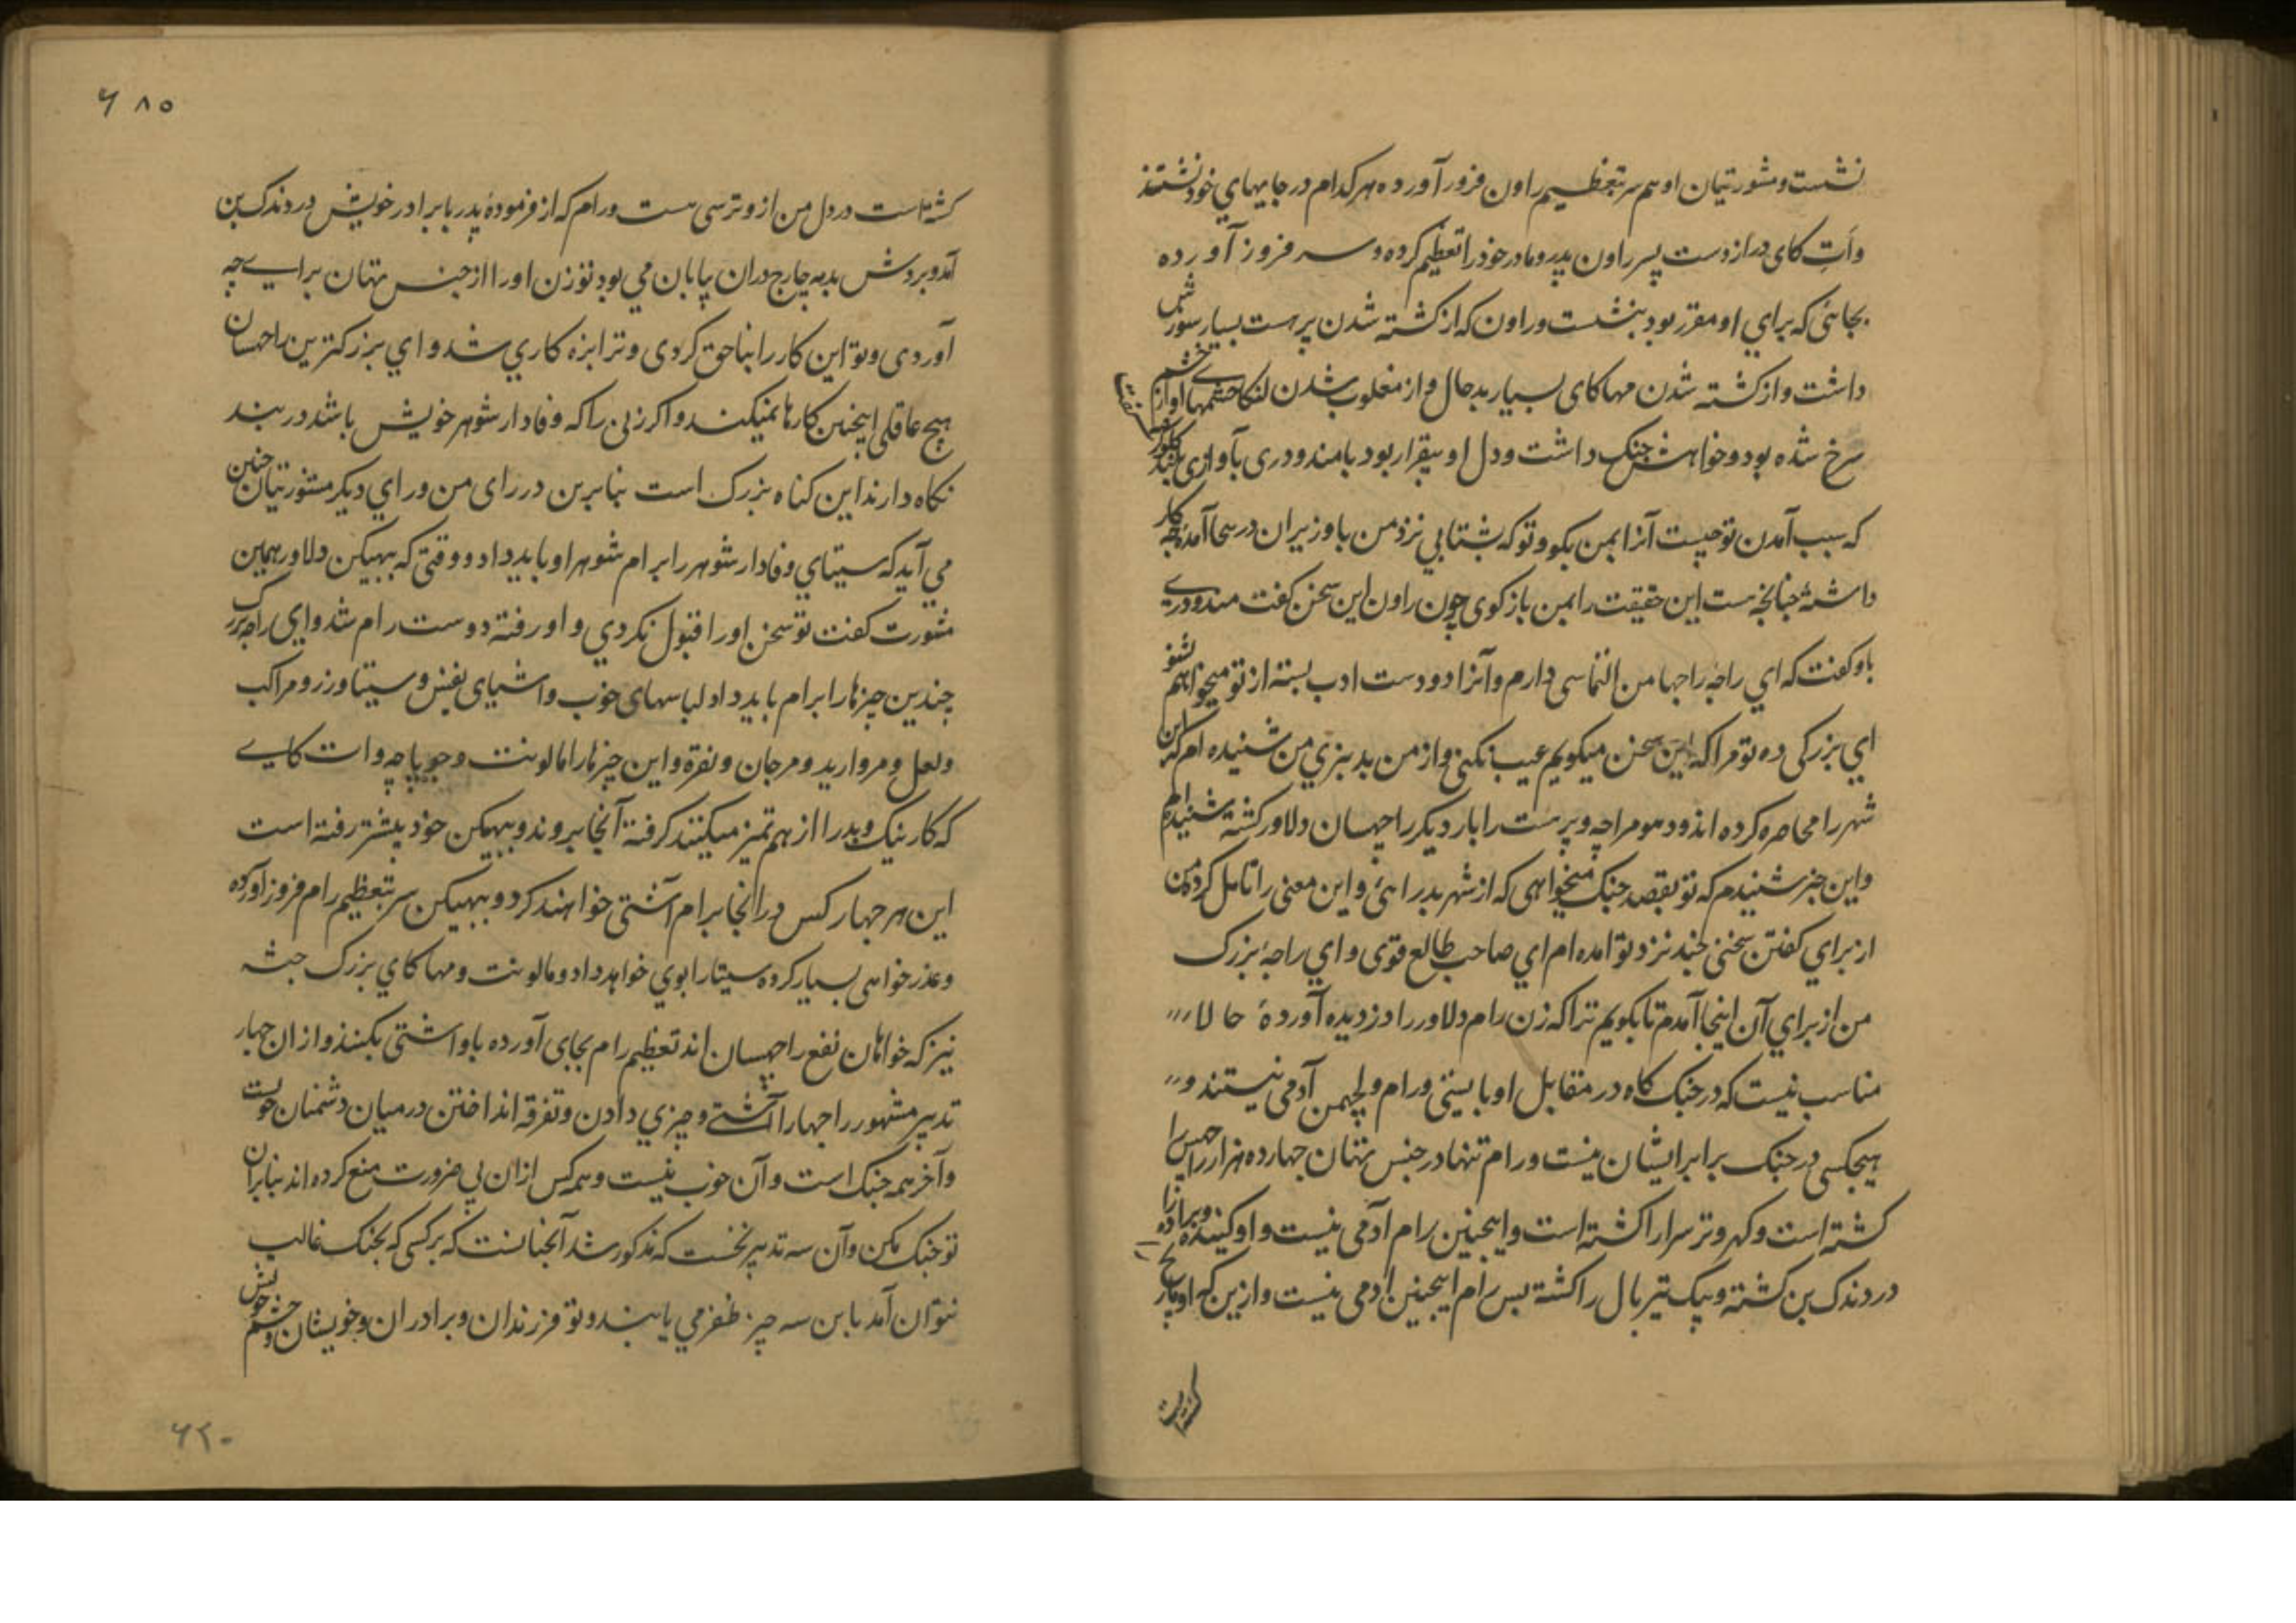 نشست و مشورتیان او هم سر بتعظیم راون فرود آورده هر کدام در جایهای خود نشستند
وات کای دراز دست پسر راون پدر و مادر خود را تعظیم کرده و سر فرود آورده
بجائی که برای او مقرر بود بنشست و راون که از کشته شدن پرهست بسیار سوزش
داشت و از کشته شدن مهاکای بسیار بدحال و از مغلوب شدن لنکا چشمهای او از خشم
سرخ شده بود و خواهش جنک داشت و دل او بیقرار بود با مندودری بآوازی بلند
که سبب آمدن تو چیست آنرا بمن بکو و تو که بشتابی نزد من با وزیران در سحا آمدۀ چه کار
داشتۀ چنانچه هست این حقیقت را بمن بازکوی چون راون این سخن کفت مندودری
باو کفت که ای راجه راجها من التماسی دارم و آنرا دو دست ادب بسته از تو میخواهم بشنو
ای بزرکی ده تو مرا که این سخن میکویم عیب نکنی و از من بد نبری من شنیده ام که این
شهر را محاصره کرده اند و دهومراچه و پرهست را بار دیکر راچهسان دلاور کشته شنیده ام
و این خبر شنیدم که تو بقصد جنک میخواهی که از شهر بدر ائی و این معنی را تامل کرده من
از برای کفتن سخنی چند نزد تو امده ام ای صاحب طالع قوی و ای راجۀ بزرک
من از برای آن اینجا آمدم تا بکویم ترا که زن رام دلاور را دزدیده آوردۀ حالا
مناسب نیست که در جنک کاه در مقابل او بایستی و رام و لچهمن آدمی نیستند و
هیچکسی در جنک برابر ایشان نیست و رام تنها در جنس تهان چهارده هزار راچهس را
کشته است و کهر و ترسرا را کشته است و اینچنین رام آدمی نیست و او کبنده و برادزا
در دندک بن کشته و بیک تیر بال را کشته پس رام اینچنین ادمی نیست و ازین که او مارج
کشته است
۶۸۵
کشته است در دل من از و ترسی هست و رام که از فرمودۀ پدر با برادر خویش در دندک بن
آمد و بروش بدبه چارج دران بیابان می بود تو زن او را از جنس تهان برای چه
آوردی و تو این کار را بناحق کردی و ترا بزه کاری شد و ای بزرکترین راچهسان
هیچ عاقلی اینچنین کارها نمیکند و اکر زنی را که وفادار شوهر خویش باشد در بند
نکاه دارند این کناه بزرک است بنابرین در رای من و رای دیکر مشورتیان چنین
می آید که سیتای وفادار شوهر را برام شوهر او باید داد و وقتی که ببهیکن دلاور همین
مشورت کفت تو سخن او را قبول نکردی و او رفته دوست رام شد و ای راجه بزرک
چندین چیزها را برام باید داد لباسهای خوب و اشیای نفیس و سیتا و زر و مراکب
و لعل و مروارید و مرجان و نقره و این چیزها را مالونت و جوپاچه و ات کای
که کار نیک و بد را از هم تمیز میکنند کرفته آنجا بروند و ببهیکن خود پیشتر رفته است
این هر چهار کس در انجا برام آشتی خواهند کرد و ببهیکن سر بتعظیم رام فرود آورده
و عذرخواهی بسیار کرده سیتا را بوی خواهد داد و مالونت و مهاکای بزرک جثه
نیز که خواهان نفع راچهسان اند تعظیم رام بجای آورده باو اشتی بکنند و از ان چهار
تدبیر مشهور راجها را آشتی و چیزی دادن و تفرقه انداختن در میان دشمنان خوبست
و آخر همه جنک است و آن خوب نیست و همه کس ازان بی ضرورت منع کرده اند بنابران
تو جنک مکن و آن سه تدبیر نخست که مذکور شد آنچنانست که بر کسی که بجنک غالب
نتوان آمد باین سه چیز ظفر می یابند و تو فرزندان و برادران و خویشان و حشم خویش
۶۲۰